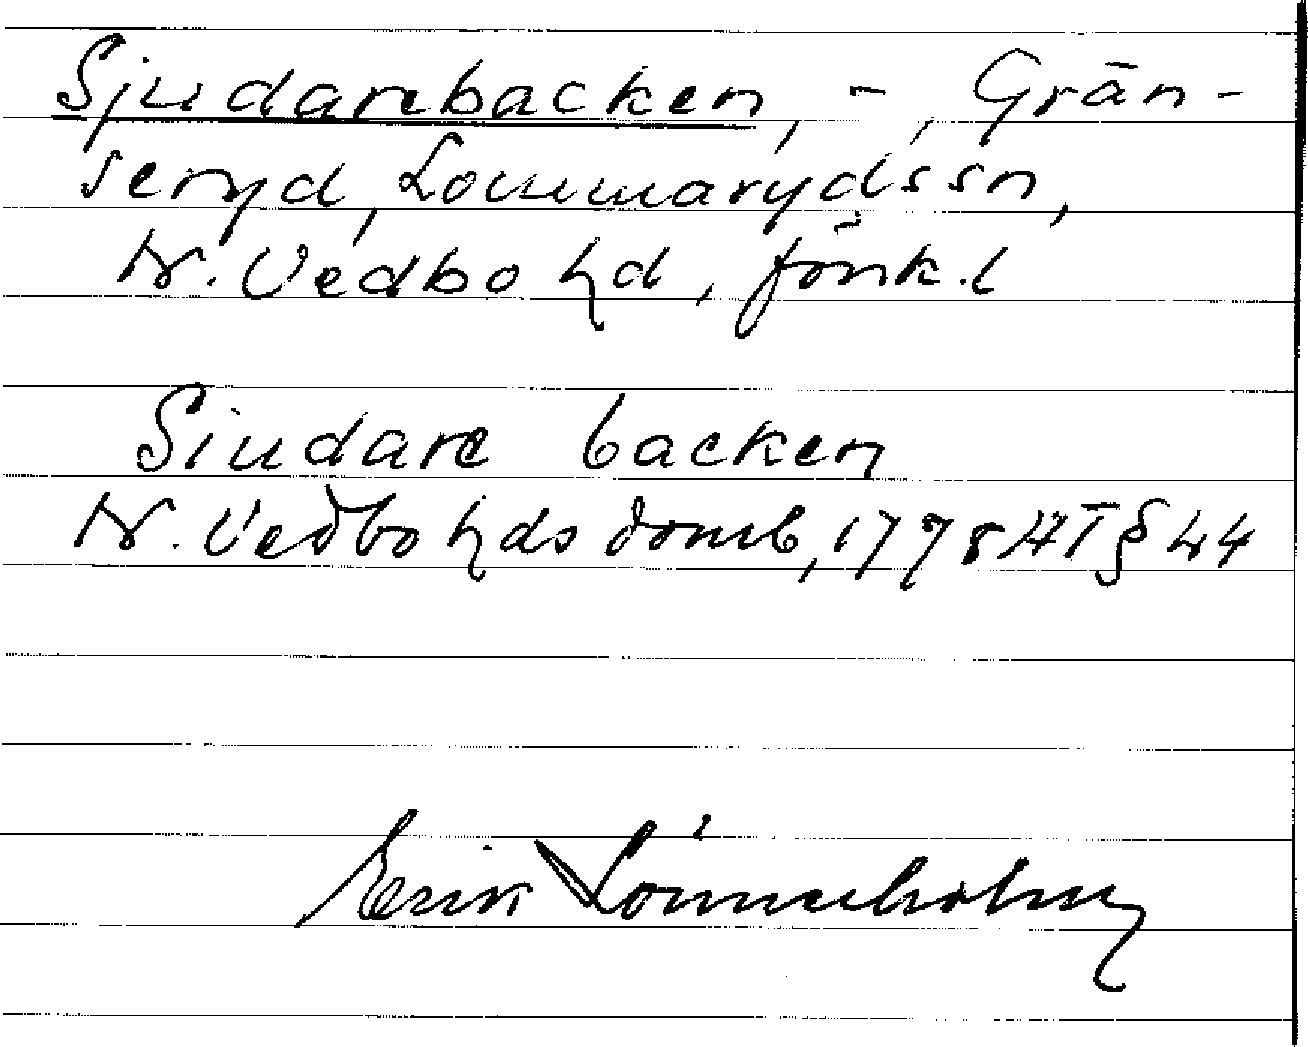 Sjudarebacken, -, Grän-
seryd, Lommarydssn,
N. Vedbo hd, Jönk.l
Siudare backen
N. Vedbo hds domb, 1778 HT § 44
Erik Lönnerholm